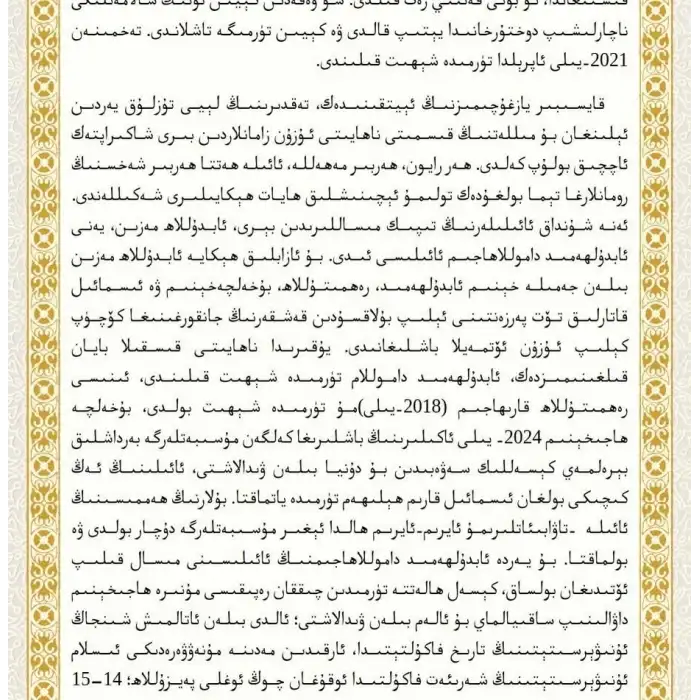 ناچارلىشىپ دوختۇرخانىدا يېتىپ قالدى ۋە كېيىن تۈرمىگە تاشلاندى. تەخمىنەن
2021-يىلى ئاپرېلدا تۈرمىدە شېھىت قىلىندى.
قايسىبىر يازغۇچىمىزنىڭ ئېيتقىنىدەك، تەقدىرىنىڭ لېيى تۇزلۇق يەردىن
ئېلىنغان بۇ مىللەتنىڭ قىسمىتى ناھايىتى ئۇزۇن زامانلاردىن بىرى شاكىراپتەك
ئاچچىق بولۇپ كەلدى. ھەر رايون، ھەربىر مەھەللە، ئائىلە ھەتتا ھەربىر شەخسنىڭ
رومانلارغا تېما بولغۇدەك تولىمۇ ئېچىنىشلىق ھايات ھېكايىلىرى شەكىللەندى.
ئەنە شۇنداق ئائىلىلەرنىڭ تىپىك مىساللىرىدىن بىرى، ئابدۇللاھ مەزىن، يەنى
ئابدۇلھەمىد داموللاھاجىم ئائىلىسى ئىدى. بۇ ئازابلىق ھېكايە ئابدۇللاھ مەزىن
بىلەن جەمىلە خېنىم ئابدۇلھەمىد، رەھمىتۇللاھ، بۇخەلچەخېنىم ۋە ئىسمائىل
قاتارلىق تۆت پەرزەنتىنى ئېلىپ بۇلاقسۇدىن قەشقەرنىڭ جانقورغىنىغا كۆچۈپ
كېلىپ ئۇزۇن ئۆتمەيلا باشلىغانىدى. يۇقىرىدا ناھايىتى قىسقىلا بايان
قىلغىنىمىزدەك، ئابدۇلھەمىد داموللام تۈرمىدە شېھىت قىلىندى، ئىنىسى
رەھمىتۇللاھ قارىھاجىم (2018-يىلى)مۇ تۈرمىدە شېھىت بولدى، بۇخەلچە
ھاجىخېنىم 2024- يىلى ئاكىلىرىنىڭ باشلىرىغا كەلگەن مۇسىبەتلەرگە بەرداشلىق
بېرەلمەي كېسەللىك سەۋەبىدىن بۇ دۇنيا بىلەن ۋىدالاشتى، ئائىلىنىڭ ئەڭ
كىچىكى بولغان ئىسمائىل قارىم ھېلىھەم تۈرمىدە ياتماقتا. بۇلارنىڭ ھەممىسىنىڭ
ئائىلە -تاۋابىئاتلىرىمۇ ئايرىم-ئايرىم ھالدا ئېغىر مۇسىبەتلەرگە دۇچار بولدى ۋە
بولماقتا. بۇ يەردە ئابدۇلھەمىد داموللاھاجىمنىڭ ئائىلىسىنى مىسال قىلىپ
ئۆتىدىغان بولساق، كېسەل ھالەتتە تۈرمىدىن چىققان رەپىقىسى مۇنىرە ھاجىخېنىم
داۋالىنىپ ساقىيالماي بۇ ئالەم بىلەن ۋىدالاشتى؛ ئالدى بىلەن ئاتالمىش شىنجاڭ
ئۇنىۋېرسىتېتىنىڭ تارىخ فاكۇلتېتىدا، ئارقىدىن مەدىنە مۇنەۋۋەرەدىكى ئىسلام
ئۇنىۋېرسىتېتىنىڭ شەرىئەت فاكۇلتىدا ئوقۇغان چوڭ ئوغلى پەيزۇللاھ؛ 14–15